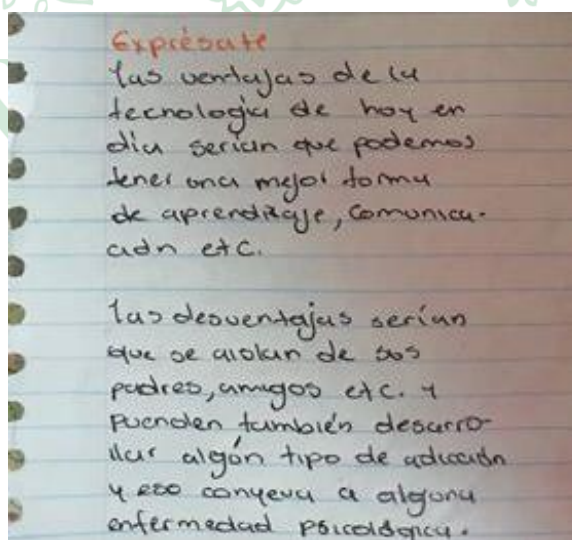 Exprésate
las ventajas de la
tecnología de hoy en
día serían que podemos
tener una mejor forma
de aprendizaje, comunica-
ción etc.
las desventajas serían
que se aislan de sus
padres, amigos etc. y
puenden también desarro-
llar algún tipo de adicción
y eso conyeva a alguna
enfermedad psicológica.